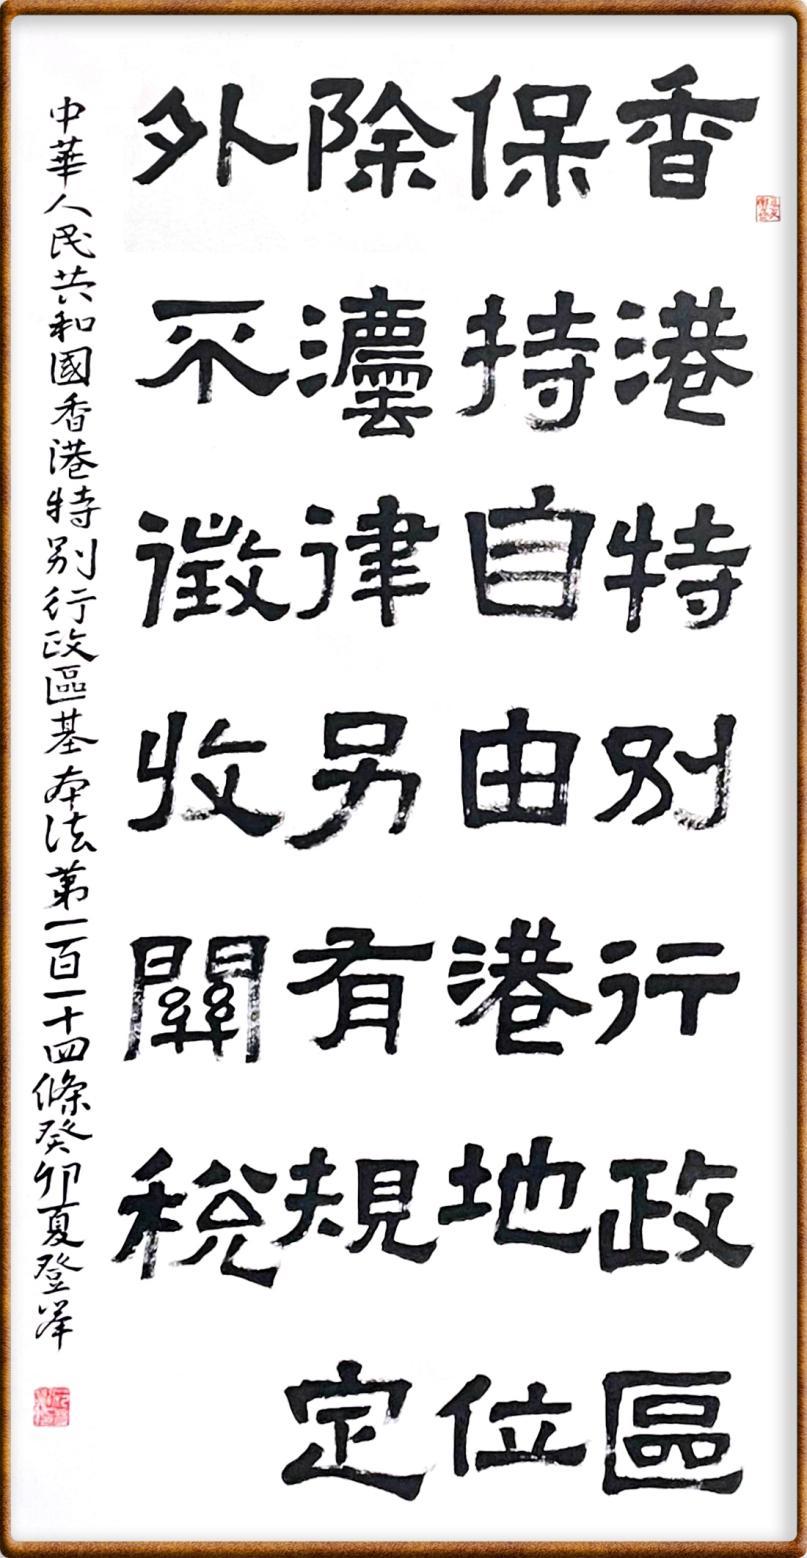 香港特別行政區
保持自由港地位
除灋律另有規定
外不徵收關稅
中華人民共和國香港特別行政區基本法第一百一十四條癸卯夏登峯